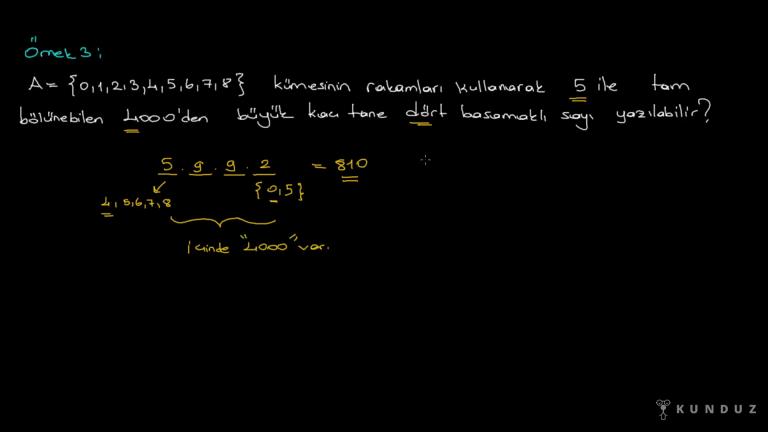 Örnek 3:
A = {0,1,2,3,4,5,6,7,8} kümesinin rakamları kullanarak 5 ile tam
bölünebilen 4000'den büyük kaç tane dört basamaklı sayı yazılabilir?
5 . 9 . 9 . 2 = 810
{0,5}
4,5,6,7,8
İçinde "4000" var.
KUNDUZ